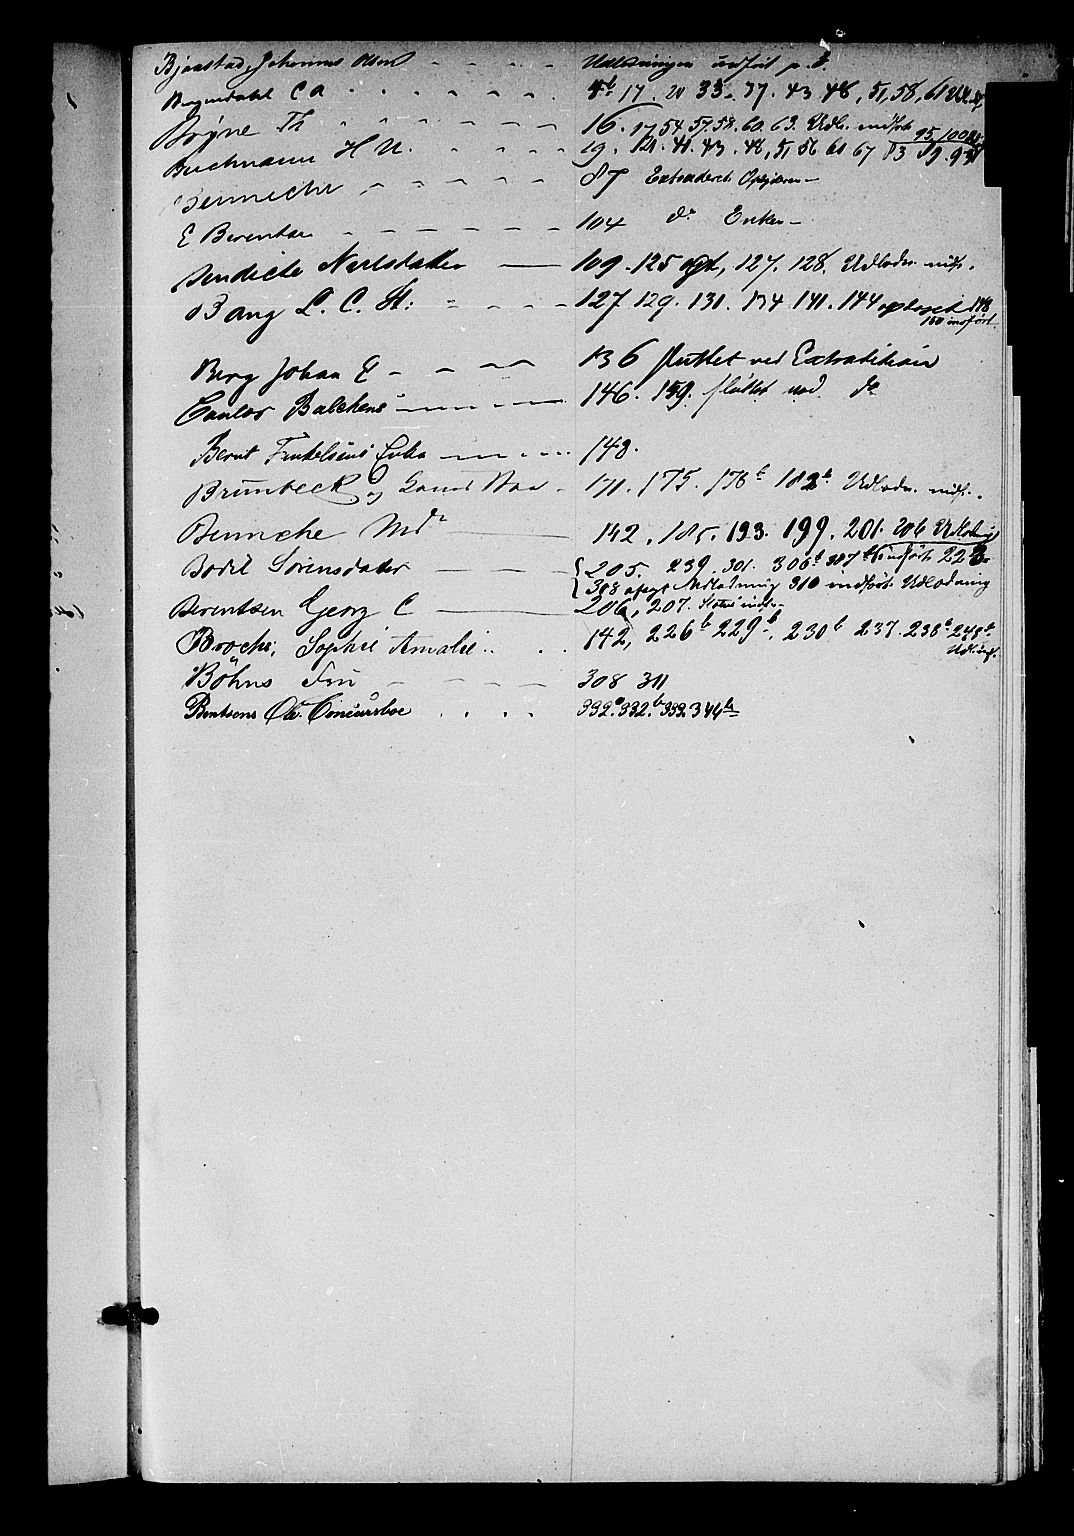 Bjørstad, Johannes Olsen - - - - Udlodningen indført p. 8.
Bergendahl C A - - - - 4b 17. 20 33. 37. 43 48, 51, 58, 61 Udl.
Brÿne Th - - - - 16. 17 54 57. 58. 60. 63. Udlo. indført
95, 100
Buchmann H N. - - - - 19. 21. 41. 43. 48, 51 56 61 67 83 89. 93
Bennecke - - - - 87 Extraderet
E Berentse - - - - 104 do Enken -
Bendicte Nielsdatter — 109. 125 opt, 127. 128. Udlodn. indf.
Bang L. C. St: - - - 127 129. 131. 134 141. 144 148
150 indført.
Berg Johan E - - - - 136 sluttet ved Extradition
Balchens - - - 146. 159. sluttet ved do
Bernt Enke - - - 148.
Brunbeck og - 171. 175. 178b 182b Udlodn. indf.
Bennche Md — 142. 185. 193. 199. 201. 206 Udlodning
Bodil Sørensdatter — — — 205. 239. 301. 306b 307b indført 223
308 Udlodning 310 indført Udlodning
Berentzen Georg C — 206, 207. indf.
Broche, Sophie Amalie . . 142, 226b 229b, 230b 237. 238b 248b
Udl. indf.
Böhns Fru - - - - 308 311
Bentsens Ole Concursboe . . . . 332a. 332.b 339. 344b